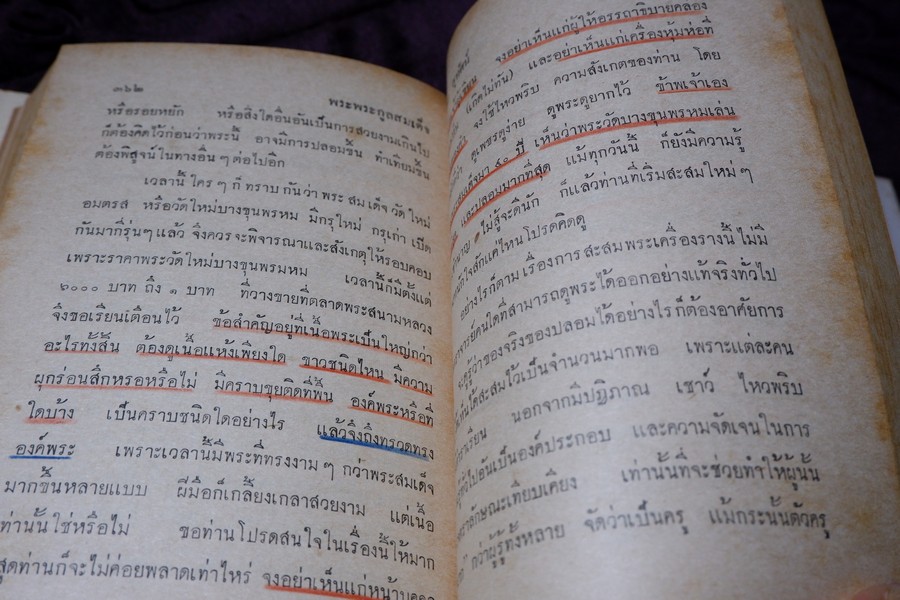 ๓๖๒
พระพระกูลสมเด็จ
หรือรอยหยัก หรือสิ่งใดอื่นอันเป็นการสวยงามเกินไป
ก็ต้องคิดไว้ก่อนว่าพระนี้ อาจมีการปลอมขึ้น ทำเทียมขึ้น
ต้องพิสูจน์ในทางอื่น ๆ ต่อไปอีก
เวลานี้ใคร ๆ ก็ทราบกันว่า พระ สมเด็จ วัด ใหม่
อมตรส หรือวัดใหม่บางขุนพรหม มีกรุใหม่ กรุเก่า เปิด
กันมากี่รุ่นๆ แล้ว จึงควรจะพิจารณาและสังเกตุให้รอบคอบ
เพราะราคาพระวัดใหม่บางขุนพรมหม เวลานี้ก็มีตั้งแต่
๖๐๐๐ บาท ถึง ๑ บาท ที่วางขายที่ตลาดพระสนามหลวง
จึงขอเรียนเตือนไว้ ข้อสำคัญอยู่ที่เนื้อพระเป็นใหญ่กว่า
อะไรทั้งสิ้น ต้องดูเนื้อแห้งเพียงใด ขาวชนิดไหน มีความ
ผุกร่อนสึกหรอหรือไม่ มีคราบขุยติดที่พื้น องค์พระหรือที่
ใดบ้าง เป็นคราบชนิดใดอย่างไร แล้วจึงถึงทรวดทรง
องค์พระ เพราะเวลานี้มีพระที่ทรงงาม ๆ กว่าพระสมเด็จ
มากขึ้นหลายแบบ ฝีมือก็เกลี้ยงเกลาสวยงาม แต่เนื้อ
ท่านั้นใช่หรือไม่ ขอท่านโปรดสนใจในเรื่องนี้ให้มาก
สุดท่านก็จะไม่ค่อยพลาดเท่าไหร่ จงอย่าเห็นแก่หน้า
จงอย่าเห็นแก่ผู้ให้อรรถาธิบายคล่อง
(เกิดไม่ทัน) และอย่าเห็นแก่เครื่องหุ้มห่อที่
จงใช้ไหวพริบ ความสังเกตของท่าน โดย
ดูเพชรดูง่าย ดูพระดูยากไว้ ข้าพเจ้าเอง
มา ๕๐ ปี เห็นว่าพระวัดบางขุนพรหมเล่น
และปลอมมากที่สุด แม้ทุกวันนี้ ก็ยังมีความรู้
ไม่สู้จะดีนัก ก็แล้วท่านที่เริ่มสะสมใหม่ ๆ
สักแค่ไหนโปรดคิดดู
อย่างไรก็ตาม เรื่องการ สะสมพระเครื่องรางนี้ ไม่มี
คนใดที่สามารถดูพระได้ออกอย่างแท้จริงทั่วไป
ว่าของจริงของปลอมได้อย่างไร ก็ต้องอาศัยการ
ได้สะสมไว้เป็นจำนวนมากพอ เพราะแต่ละคน
นอกจากมีปฏิภาณ เชาว์ ไหวพริบ
อันเป็นองค์ประกอบ และความจัดเจนในการ
ลักษณะเทียบเคียง เท่านั้นที่จะช่วยทำให้ผู้นั้น
กว่าผู้รู้ทั้งหลาย จัดว่าเป็นครู แม้กระนั้นตัวครู